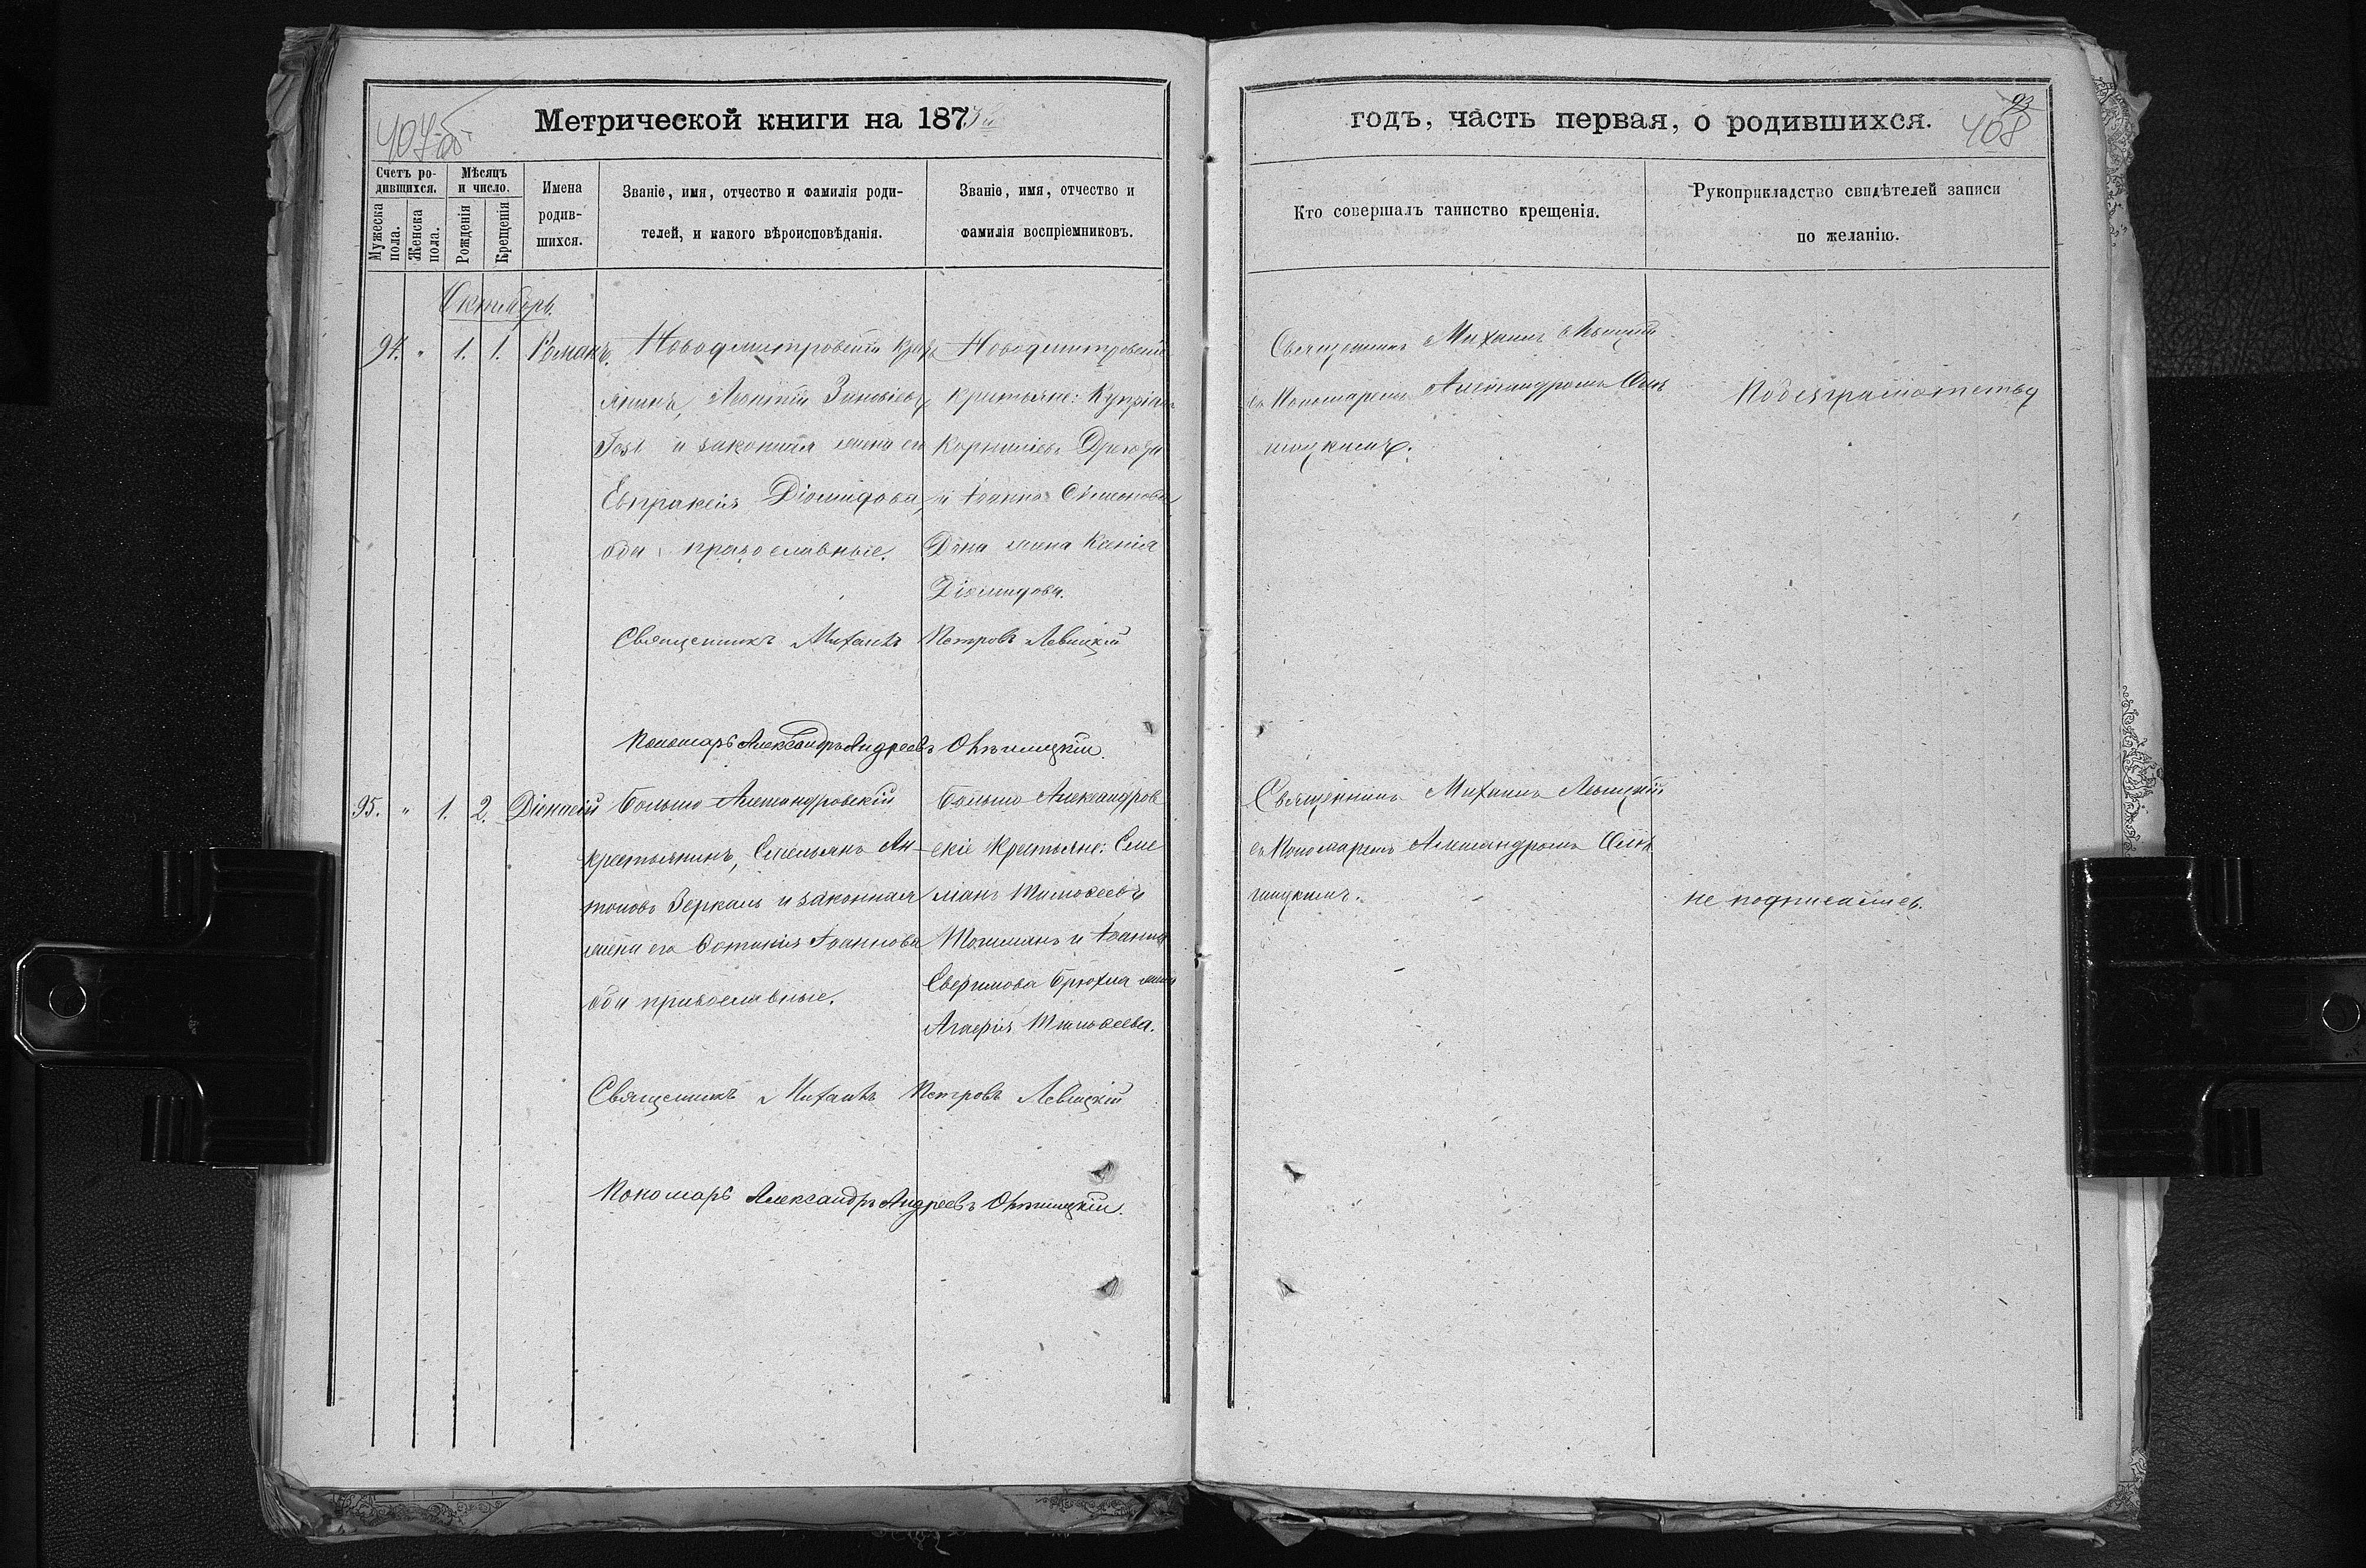 407об
Метрической книги на 187
Счетъ ро-
дившихся.
Мѣсяцъ
и число.
Мужеска
пола.
Женска
пола.
Рожденія
Крещенія
Имена
родив-
шихся.
Званіе, имя, отчество и фамилія роди-
телей, и какого вѣроисповѣданія.
Званіе, имя, отчество и
фамилія воспріемниковъ.
Октябрь.
94. " 1. 1. Романъ.
Новодмитровскій крест
янинъ, Леонтій Зиновіевъ
и законная жена его
Евпраксія Діомидова,
оба православные.
Новодмитровскіе
крестьяне: Купріанъ
Корниліевъ
и Іоанна Симеонова
жена Ксенія
Діомидова.
Священникъ Михаилъ Петровъ Левицкій
Пономарь Александръ Андреевъ Ольшицкій.
95. " 1. 2. Діонисій
Больше Александровскій
крестьянинъ, Емельянъ Ан-
тоновъ Зеркаль и законная
жена его Фотинія Іоаннова
оба православные.
Больше Александров
скіе Крестьяне: Еме
льянъ Тимоѳеевъ
и Іоанна
Евфимова Брюхна жена
Агафія Тимоѳеева.
Священникъ Михаилъ Петровъ Левицкій
Пономарь Александръ Андреевъ Ольшицкій.
годъ, часть первая, о родившихся.
93
408
Кто совершалъ таинство крещенія.
Рукоприкладство свидѣтелей записи
по желанію.
Священникъ Михаилъ Левицкій
съ Пономаремъ Александромъ Оль
шицкимъ.
По безграмотству
Священникъ Михаилъ Левицкій
съ Пономаремъ Александромъ Оль
шицкимъ.
не подписались.